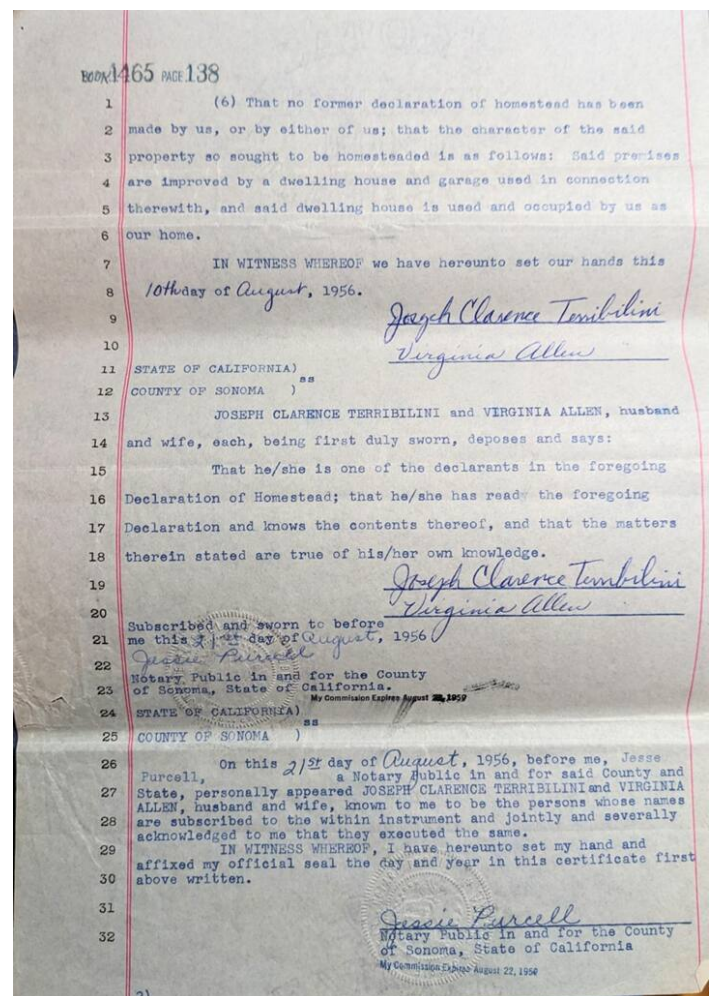 BOOK 1465 PAGE 138
1 (6) That no former declaration of homestead has been
2 made by us, or by either of us; that the character of the said
3 property so sought to be homesteaded is as follows: Said premises
4 are improved by a dwelling house and garage used in connection
5 therewith, and said dwelling house is used and occupied by us as
6 our home.
7 IN WITNESS WHEREOF we have hereunto set our hands this
8 10th day of August, 1956.
9 Joseph Clarence Terribilini
10 Virginia Allen
11 STATE OF CALIFORNIA)
ss
12 COUNTY OF SONOMA )
13 JOSEPH CLARENCE TERRIBILINI and VIRGINIA ALLEN, husband
14 and wife, each, being first duly sworn, deposes and says:
15 That he/she is one of the declarants in the foregoing
16 Declaration of Homestead; that he/she has read the foregoing
17 Declaration and knows the contents thereof, and that the matters
18 therein stated are true of his/her own knowledge.
19 Joseph Clarence Terribilini
20 Virginia Allen
Subscribed and sworn to before
21 me this 21st day of August, 1956
22 Jessie Purcell
Notary Public in and for the County
23 of Sonoma, State of California.
My Commission Expires August
24 STATE OF CALIFORNIA)
ss
25 COUNTY OF SONOMA )
26 On this 21st day of August, 1956, before me, Jesse
Purcell, a Notary Public in and for said County and
27 State, personally appeared JOSEPH CLARENCE TERRIBILINI and VIRGINIA
ALLEN, husband and wife, known to me to be the persons whose names
28 are subscribed to the within instrument and jointly and severally
acknowledged to me that they executed the same.
29 IN WITNESS WHEREOF, I have hereunto set my hand and
affixed my official seal the day and year in this certificate first
30 above written.
31 Jessie Purcell
32 Notary Public in and for the County
of Sonoma, State of California
My Commission Expires August 22,